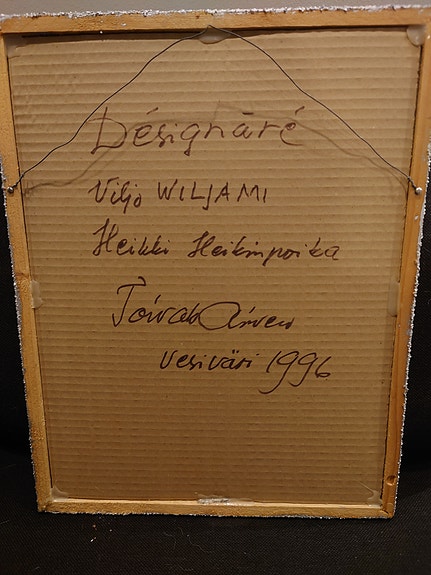 Désignāré
Viljo WILJAMI
Heikki Heikinpoika
Vesiväri 1996